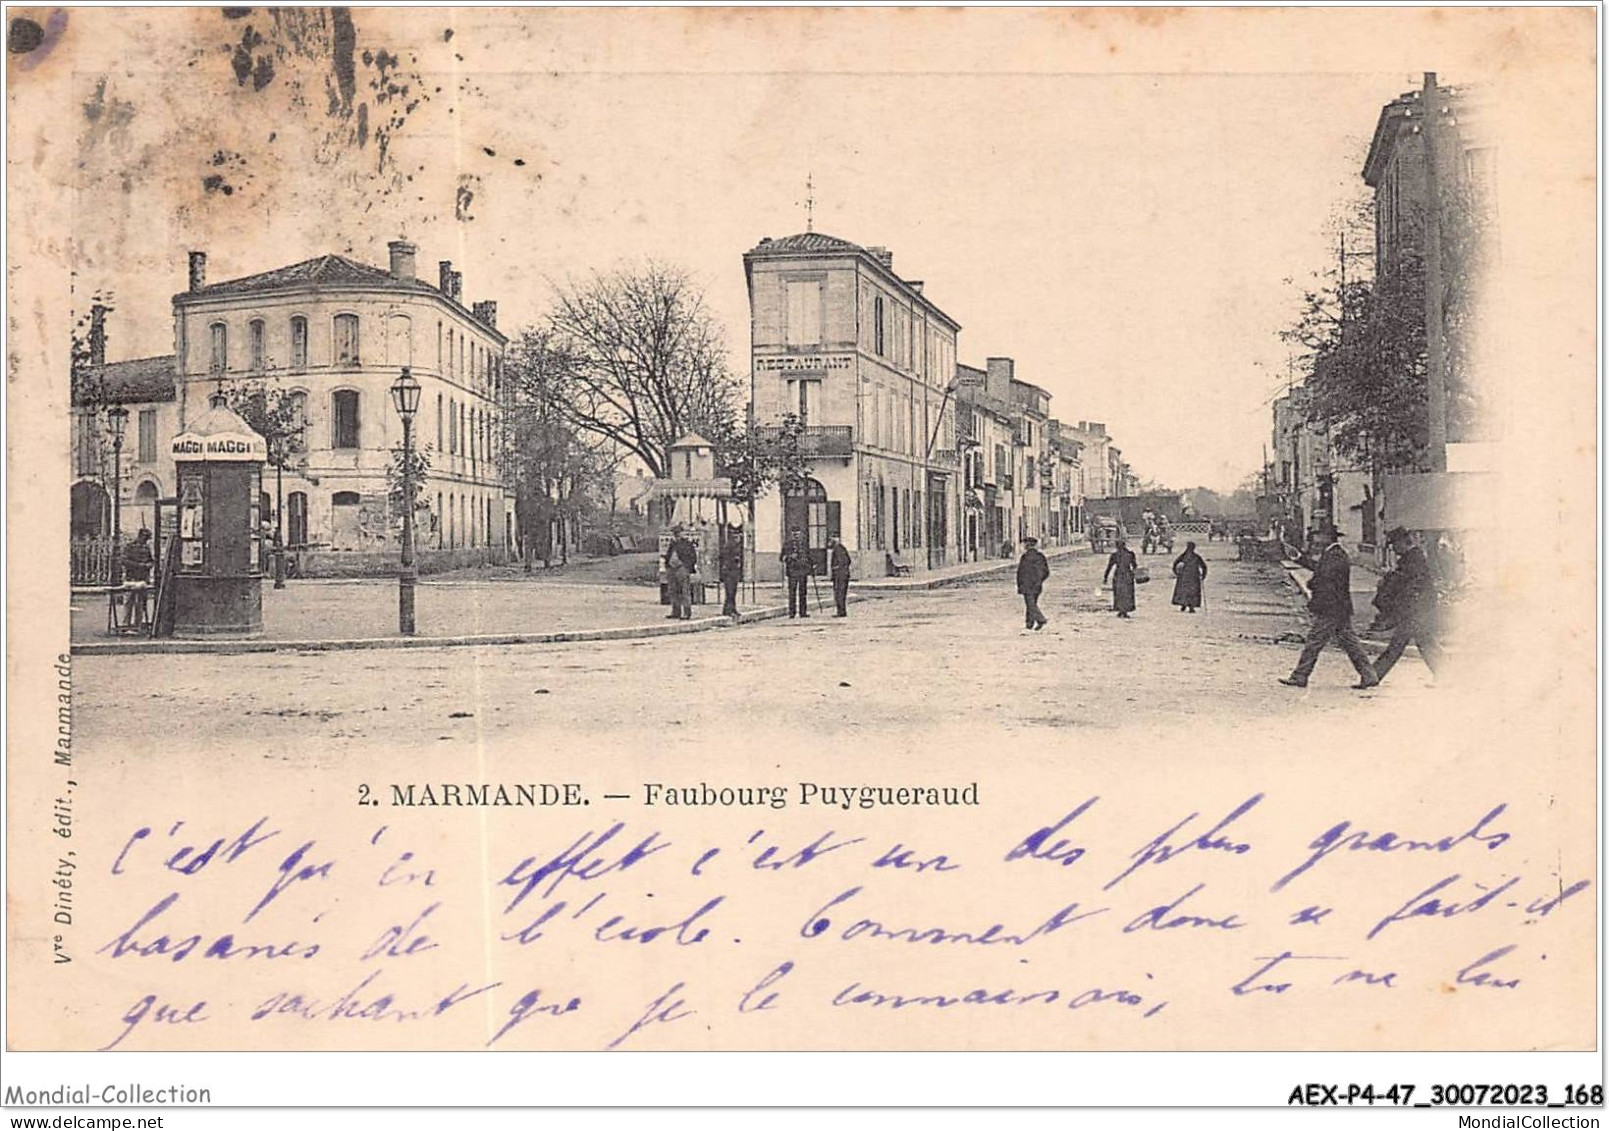 MAGGI MAGGI
RESTAURANT
Vve Dinéty, édit., Marmande
2. MARMANDE. — Faubourg Puygueraud
C'est qu'en effet c'est un des plus grands
basanés de l'école. Comment donc se fait-il
que sachant que je le connaissais, tu ne lui
Mondial-Collection
AEX-P4-47_30072023_168
Mondial-Collection
MondialCollection